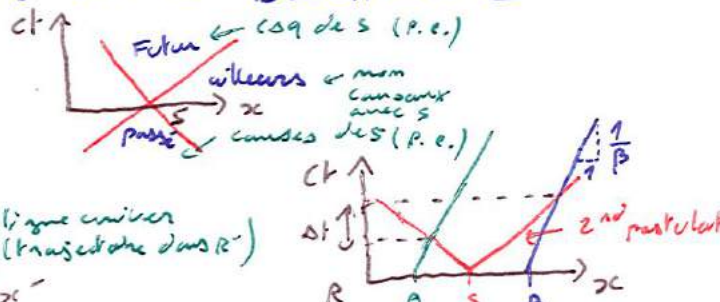 ct
Futur ← csq de S (p.e.)
ailleurs ← non
causaux
avec S
S x
passé ← causes de S (p.e.)
1
β
1
ct
ligne univers
(trajectoire dans R)
Δt
2nd postulat
x
R A S B x